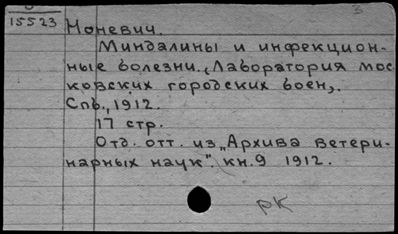 3
15523
Моневич.
Миндалины и инфекцион-
ные болезни. (Лаборатория мос
ковских городских боен).
Спб., 1912.
17 стр.
Отд. отт. из „Архива ветери-
нарных наук". кн. 9 1912.
рк